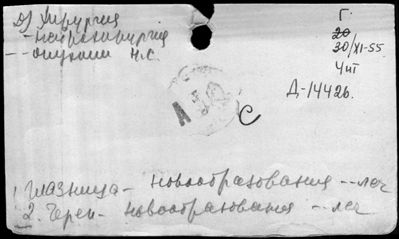 Д) Хирургия
- нейрохирургия
-- опухоли Н.С.
Г.
20
30/XI-55
Чит
Д-14426.
А
С
1. Глазница - новообразования -- леч
2. Череп - новообразования -- леч